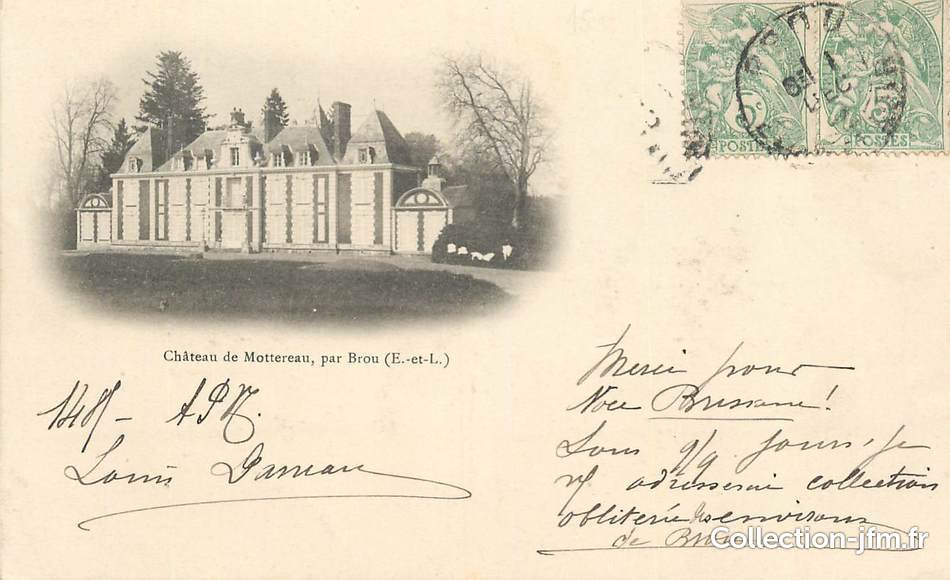 BROU
5c 5c
POSTES POSTES
Château de Mottereau, par Brou (E.-et-L.)
1485 - APM.
Louis
Merci pour
Noce Bressane!
Sous qq jours, je
vs adresserai collection
obliterée des environs
de Brou
Collection-jfm.fr